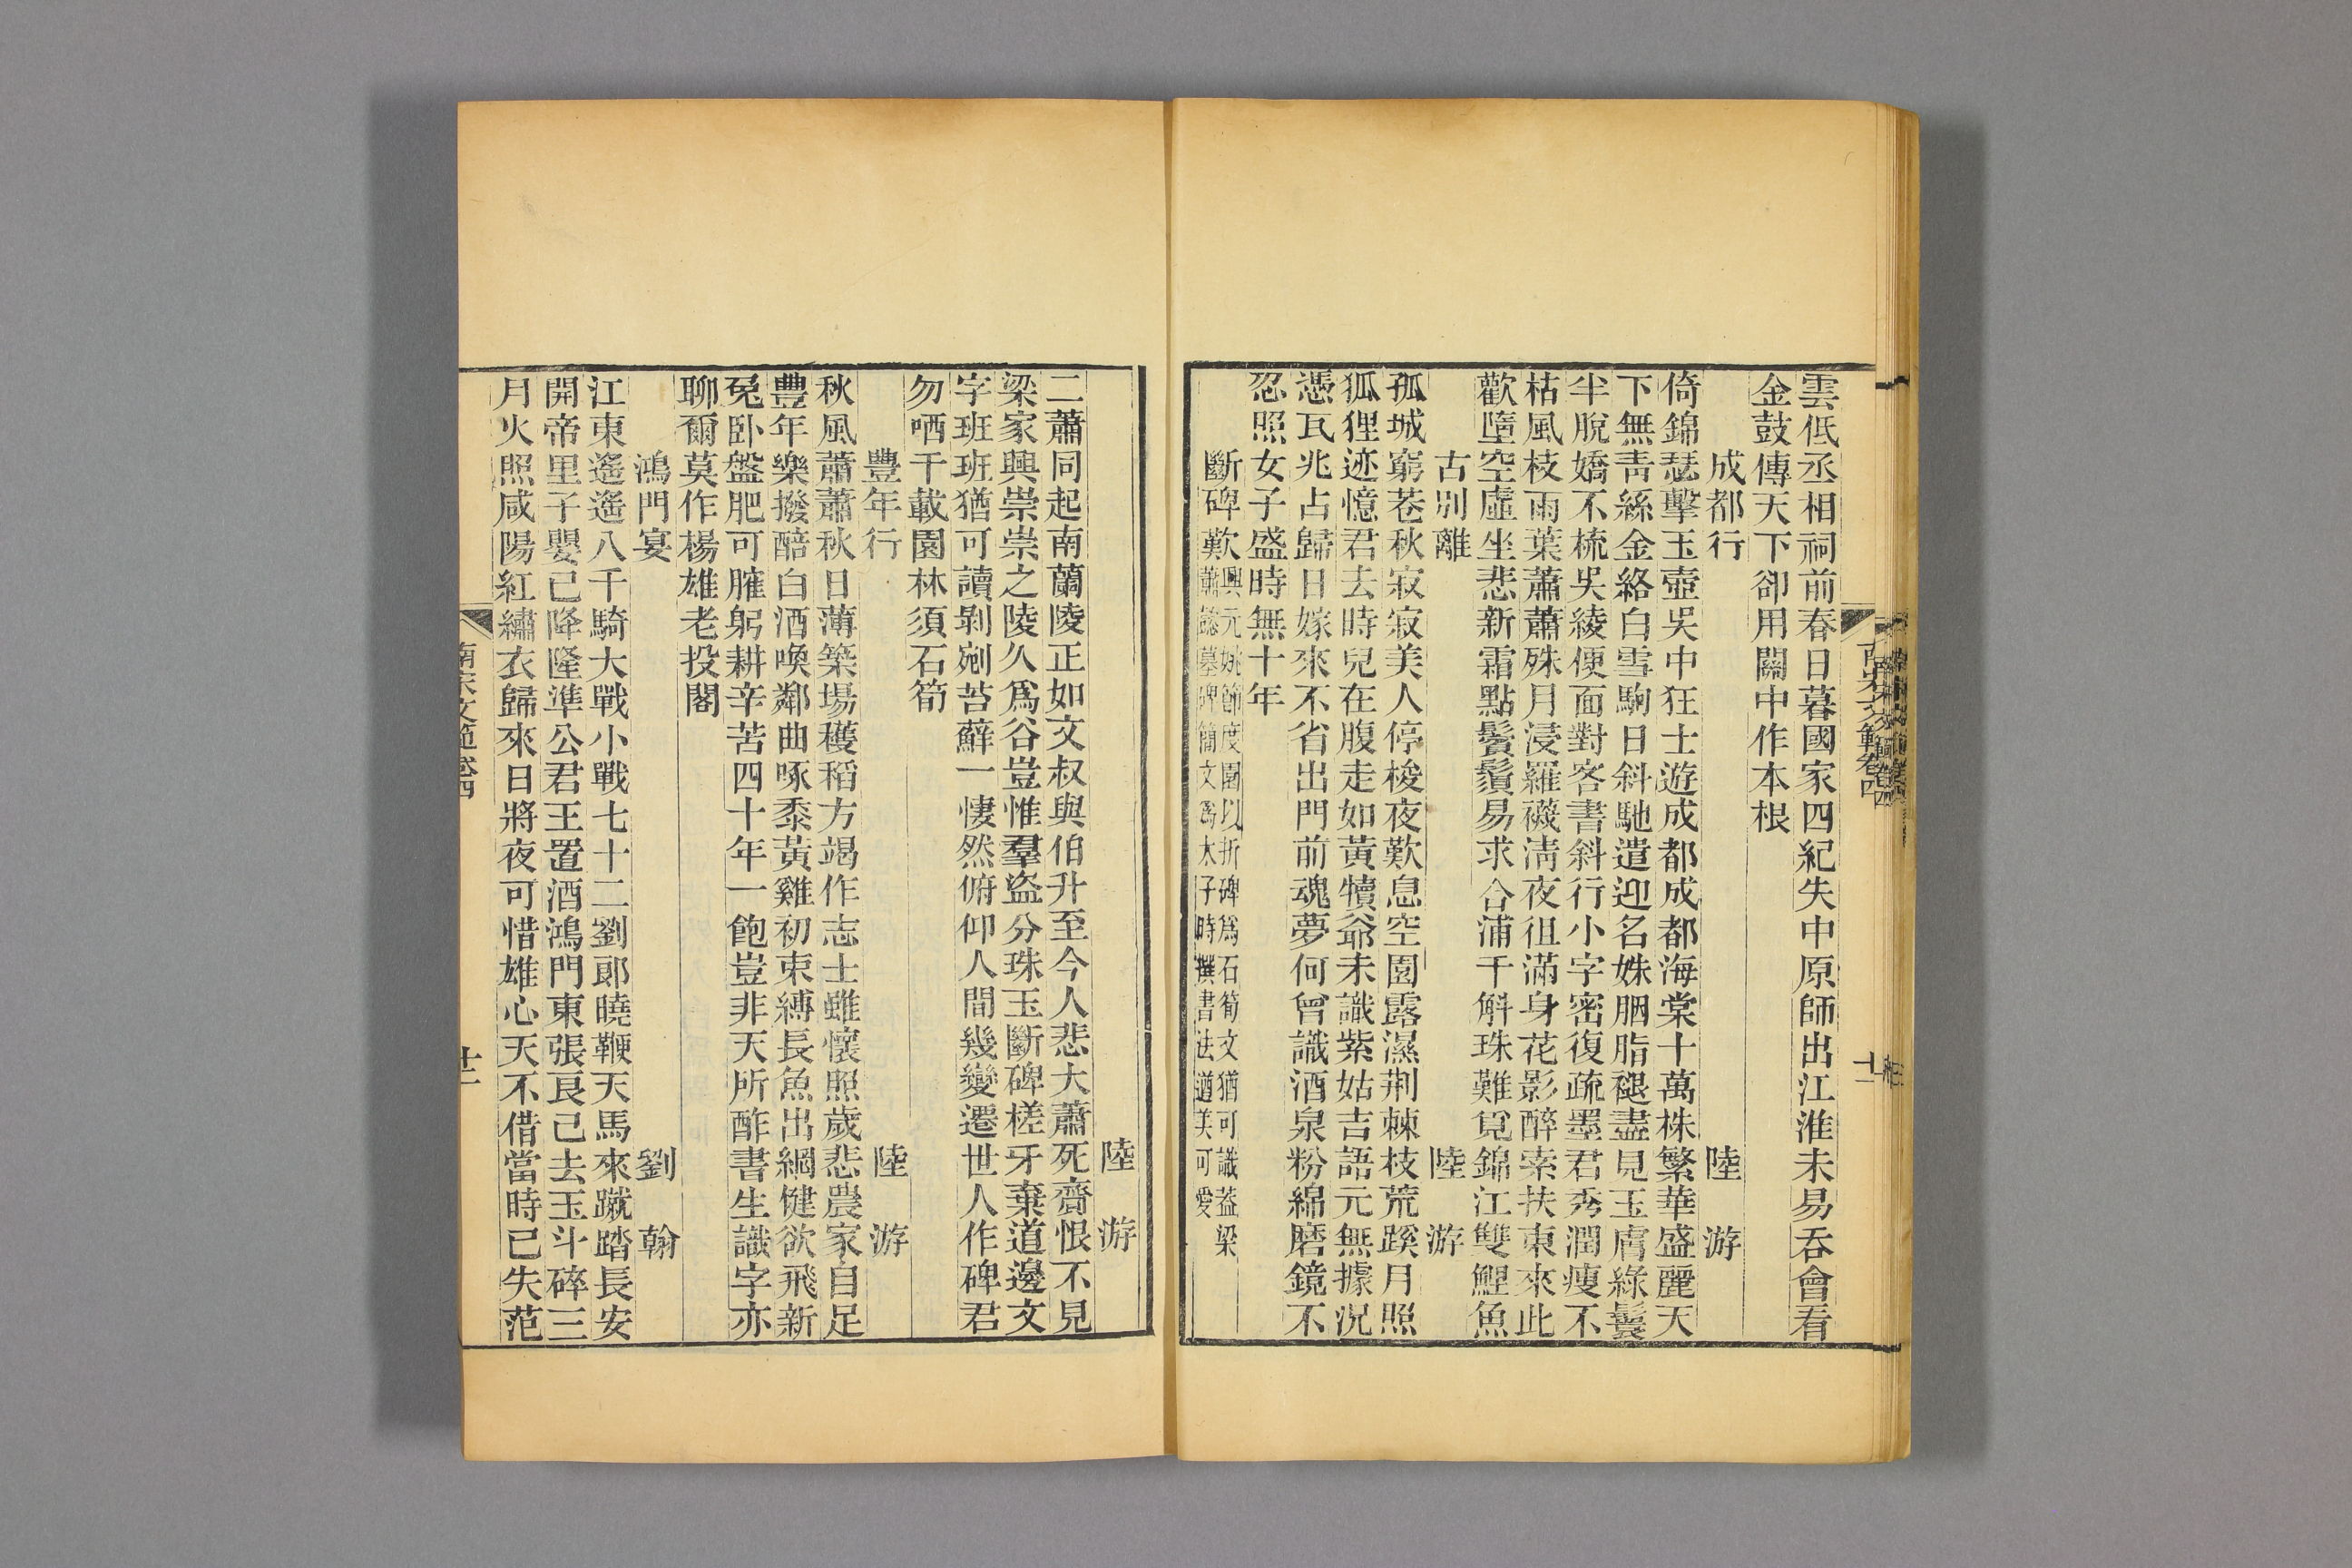 雲低丞相祠前春日暮國家四紀失中原師出江淮未易吞會看
金鼓傳天下卻用關中作本根
成都行　陸游
倚錦瑟擊玉壺吳中狂士遊成都成都海棠十萬株繁華盛麗天
下無靑絲金絡白雪駒日斜馳遣迎名姝胭脂褪盡見玉膚綠鬟
半脫嬌不梳吳綾便面對客書斜行小字密復疏墨君秀潤瘦不
枯風枝雨葉蕭蕭殊月浸羅襪淸夜徂滿身花影醉索扶東來此
歡墮空虛坐悲新霜點鬢鬚易求合浦千斛珠難覓錦江雙鯉魚
古別離　陸游
孤城窮巷秋寂寂美人停梭夜歎息空園露濕荆棘枝荒蹊月照
狐狸迹憶君去時兒在腹走如黃犢爺未識紫姑吉語元無據況
憑瓦兆占歸日嫁來不省出門前魂夢何曾識酒泉粉綿磨鏡不
忍照女子盛時無十年
斷碑歎興元姚節度園以折碑爲石筍文猶可識葢梁
蕭懿墓碑簡文爲太子時撰書法遒美可愛
陸游
二蕭同起南蘭陵正如文叔與伯升至今人悲大蕭死齋恨不見
梁家興崇崇之陵久爲谷豈惟羣盜分珠玉斷碑槎牙棄道邊文
字班班猶可讀剝剜苔蘚一悽然俯仰人間幾變遷世人作碑君
勿哂千載園林須石筍
豐年行　陸游
秋風蕭蕭秋日薄築場穫稻方竭作志士雖懷照歲悲農家自足
豐年樂撥醅白酒喚鄰曲啄黍黃雞初束縛長魚出網健欲飛新
兔臥盤肥可臛躬耕辛苦四十年一飽豈非天所酢書生識字亦
聊爾莫作楊雄老投閣
鴻門宴　劉翰
江東遙遙八千騎大戰小戰七十二劉郞曉鞭天馬來蹴踏長安
開帝里子嬰已降隆準公君王置酒鴻門東張良已去玉斗碎三
月火照咸陽紅繡衣歸來日將夜可惜雄心天不借當時已失范
南宋文範卷四
十二
南宋文範卷四
十二